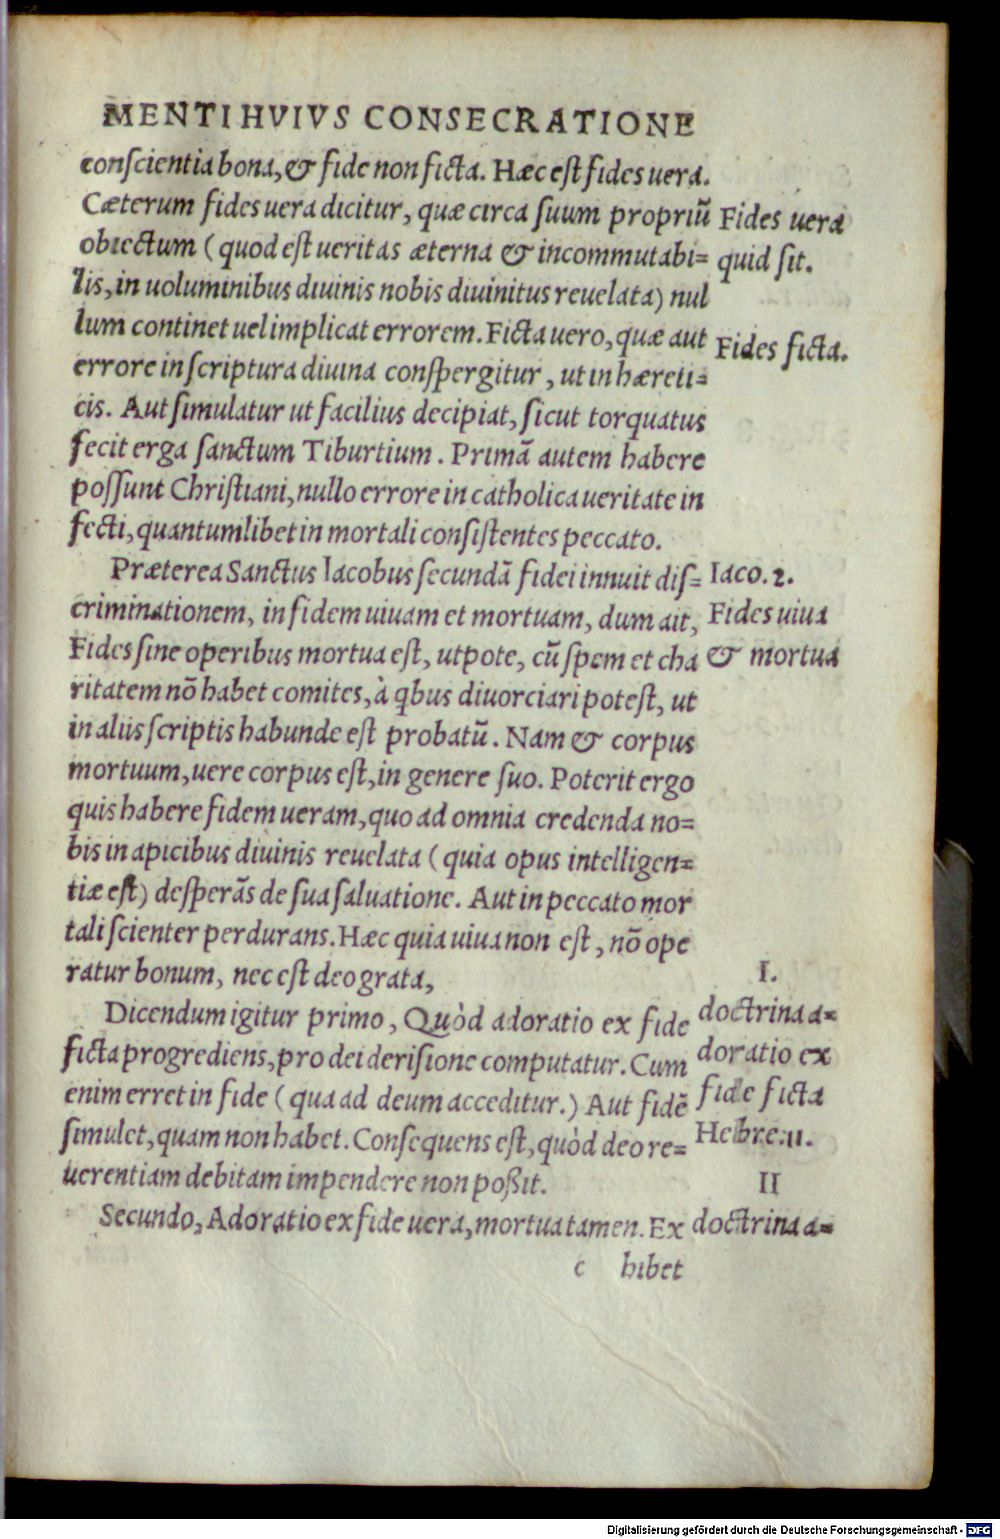 MENTI HVIVS CONSECRATIONE
conſcientia bona, & fide non ficta. Hæc eſt fides uera.
Cæterum fides uera dicitur, quæ circa ſuum propriũ
obiectum (quod eſt ueritas æterna & incommutabi=
lis, in uoluminibus diuinis nobis diuinitus reuelata) nul
lum continet uel implicat errorem. Ficta uero, quæ aut
errore in ſcriptura diuina conſpergitur, ut in hæreti=
cis. Aut ſimulatur ut facilius decipiat, ſicut torquatus
fecit erga ſanctum Tiburtium. Primã autem habere
poſſunt Chriſtiani, nullo errore in catholica ueritate in
fecti, quantumlibet in mortali conſiſtentes peccato.
Præterea Sanctus Iacobus ſecundã fidei innuit diſ=
criminationem, in fidem uiuam et mortuam, dum ait,
Fides ſine operibus mortua eſt, utpote, cũ ſpem et cha
ritatem nõ habet comites, à qbus diuorciari poteſt, ut
in aliis ſcriptis habunde eſt probatũ. Nam & corpus
mortuum, uere corpus eſt, in genere ſuo. Poterit ergo
quis habere fidem ueram, quo ad omnia credenda no=
bis in apicibus diuinis reuelata (quia opus intelligen=
tiæ eſt) deſperãs de ſua ſaluatione. Aut in peccato mor
tali ſcienter perdurans. Hæc quia uiua non eſt, nõ ope
ratur bonum, nec eſt deo grata,
Dicendum igitur primo, Quòd adoratio ex fide
ficta progrediens, pro dei deriſione computatur. Cum
enim erret in fide (qua ad deum acceditur.) Aut fidẽ
ſimulet, quam non habet. Conſequens eſt, quòd deo re=
uerentiam debitam impendere non poßit.
Secundo, Adoratio ex fide uera, mortua tamen. Ex
c hibet
Fides uera
quid ſit.
Fides ficta.
Iaco. 2.
Fides uiua
& mortua
I.
doctrina a=
doratio ex
fide ficta
Hebre. 11.
II
doctrina a=
Digitalisierung gefördert durch die Deutsche Forschungsgemeinschaft - DFG